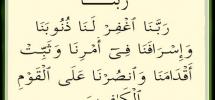 رَبَّنَا
رَبَّنَا ٱغْفِرْ لَنَا ذُنُوبَنَا
وَإِسْرَافَنَا فِىٓ أَمْرِنَا وَثَبِّتْ
أَقْدَامَنَا وَٱنصُرْنَا عَلَى ٱلْقَوْمِ
ٱلْكَافِرِينَ